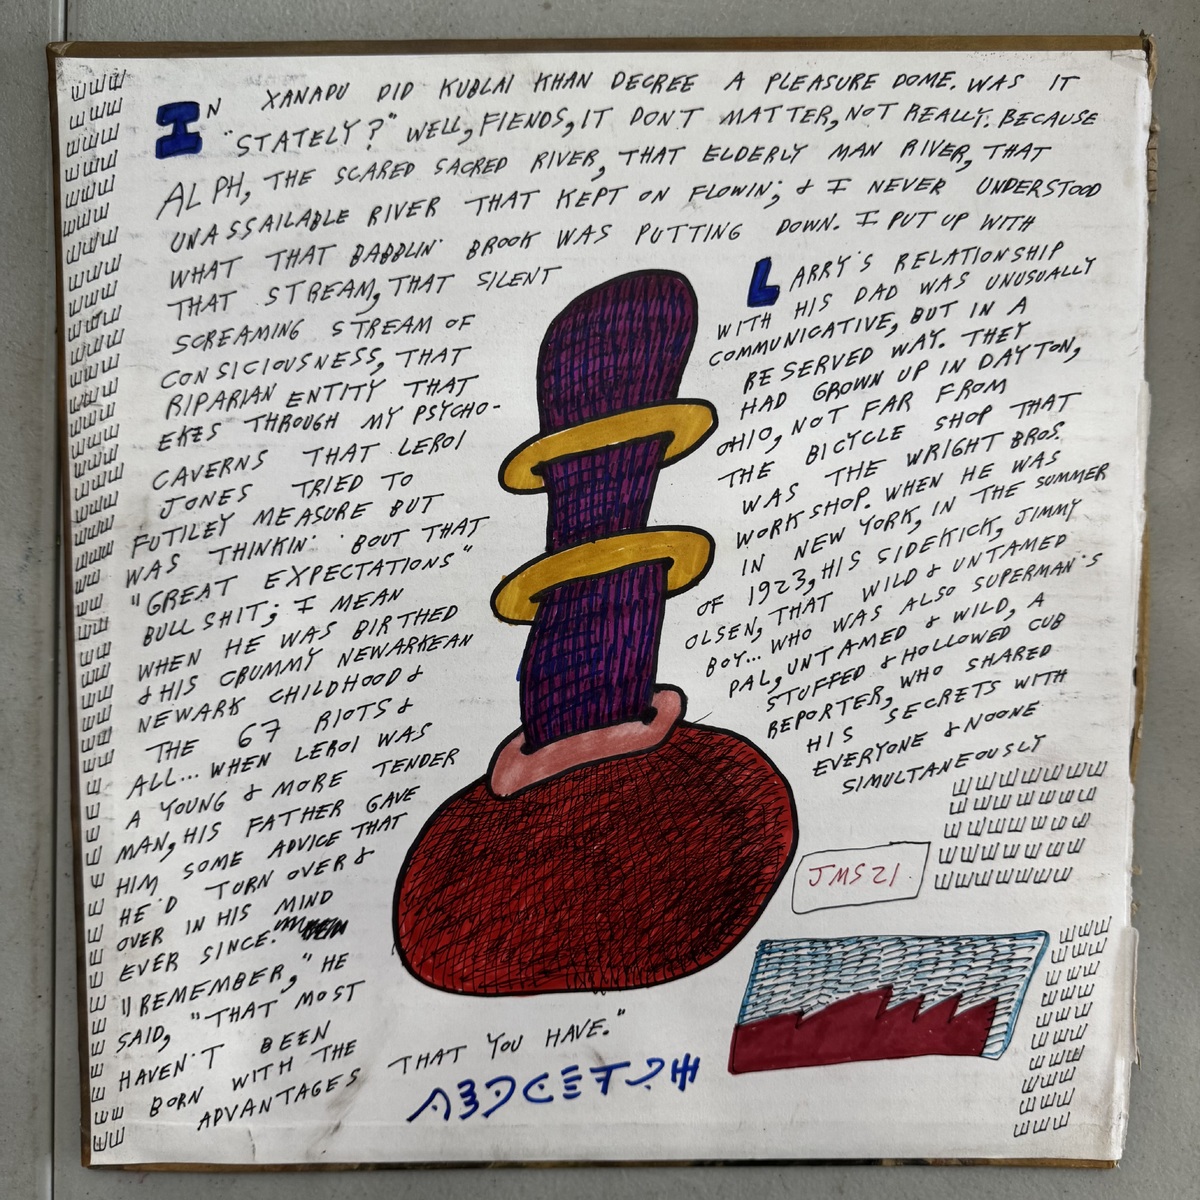 IN XANADU DID KUBLAI KHAN DECREE A PLEASURE DOME. WAS IT
"STATELY?" WELL, FIENDS, IT DON'T MATTER, NOT REALLY. BECAUSE
ALPH, THE SCARED SACRED RIVER, THAT ELDERLY MAN RIVER, THAT
UNASSAILABLE RIVER THAT KEPT ON FLOWIN'; & I NEVER UNDERSTOOD
WHAT THAT BABBLIN' BROOK WAS PUTTING DOWN. I PUT UP WITH
THAT STREAM, THAT SILENT
SCREAMING STREAM OF
CONSICIOUSNESS, THAT
RIPARIAN ENTITY THAT
EKES THROUGH MY PSYCHO-
CAVERNS THAT LEROI
JONES TRIED TO
FUTILEY MEASURE BUT
WAS THINKIN' 'BOUT THAT
"GREAT EXPECTATIONS"
BULLSHIT; I MEAN
WHEN HE WAS BIRTHED
& HIS CRUMMY NEWARKEAN
NEWARK CHILDHOOD &
THE 67 RIOTS &
ALL... WHEN LEROI WAS
A YOUNG & MORE TENDER
MAN, HIS FATHER GAVE
HIM SOME ADVICE THAT
HE'D TURN OVER &
OVER IN HIS MIND
EVER SINCE.
"REMEMBER," HE
SAID, "THAT MOST
HAVEN'T BEEN
BORN WITH THE
ADVANTAGES THAT YOU HAVE."
LARRY'S RELATIONSHIP
WITH HIS DAD WAS UNUSUALLY
COMMUNICATIVE, BUT IN A
RESERVED WAY. THEY
HAD GROWN UP IN DAYTON,
OHIO, NOT FAR FROM
THE BICYCLE SHOP THAT
WAS THE WRIGHT BROS.
WORKSHOP. WHEN HE WAS
IN NEW YORK, IN THE SUMMER
OF 1923, HIS SIDEKICK, JIMMY
OLSEN, THAT WILD & UNTAMED
BOY... WHO WAS ALSO SUPERMAN'S
PAL, UNTAMED & WILD, A
STUFFED & HOLLOWED CUB
REPORTER, WHO SHARED
HIS SECRETS WITH
EVERYONE & NOONE
SIMULTANEOUSLY
JMS21